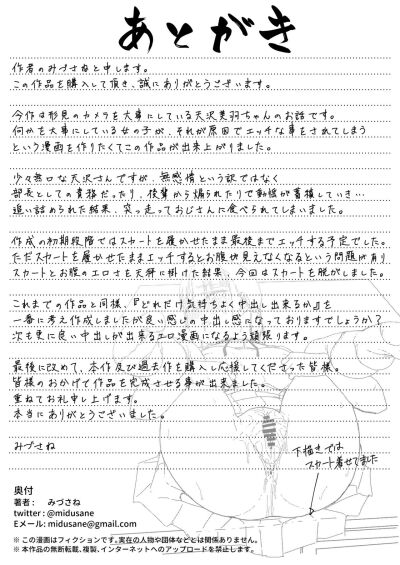 あとがき
作者のみづさねと申します。
この作品を購入して頂き、誠にありがとうございます。
今作は形見のカメラを大事にしている天沢美羽ちゃんのお話です。
何かを大事にしている女の子が、それが原因でエッチな事をされてしまう
という漫画を作りたくてこの作品が出来上がりました。
少々無口な天沢さんですが、無感情という訳ではなく
部長としての責務だったり、後輩から煽られたりで動揺が蓄積していき…
追い詰められた結果、突っ走っておじさんに食べられてしまいました。
作成の初期段階ではスカートを履かせたまま最後までエッチする予定でした。
ただスカートを履かせたままエッチするとお腹が見えなくなるという問題が有り
スカートとお腹のエロさを天秤に掛けた結果、今回はスカートを脱がしました。
これまでの作品と同様、『どれだけ気持ちよく中出し出来るか』を
一番に考え作成しましたが良い感じの中出し感になっておりますでしょうか?
次も更に良い中出しが出来るエロ漫画になるよう頑張ります。
最後に改めて、本作及び過去作を購入し応援してくださった皆様。
皆様のおかげで作品を完成させる事が出来ました。
重ねてお礼申し上げます。
本当にありがとうございました。
みづさね
下描きでは
スカート着せてました
奥付
著者: みづさね
twitter:@midusane
Eメール:midusane@gmail.com
※ この漫画はフィクションです。実在の人物や団体などとは関係ありません。
※ 本作品の無断転載、複製、インターネットへのアップロードを禁止します。